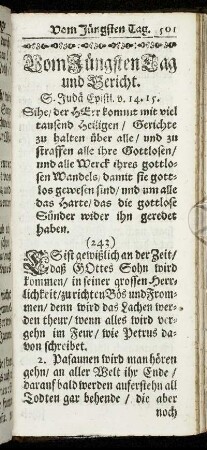 Vom Jüngsten Tag. 501
Vom Jüngsten Tag
und Gericht.
S. Judä Epistl. v. 14. 15.
Sihe/ der HErr kommt mit viel
tausend Heiligen/ Gerichte
zu halten über alle/ und zu
straffen alle ihre Gottlosen/
und alle Werck ihres gottlo-
sen Wandels/ damit sie gott-
los gewesen sind/ und um alle
das Harte/ das die gottlose
Sünder wider ihn geredet
haben.
(243)
ES ist gewißlich an der Zeit/
daß GOttes Sohn wird
kommen/ in seiner grossen Herr-
lichkeit/ zu richten Bös und From-
men/ denn wird das Lachen wer-
den theur/ wenn alles wird ver-
gehn im Feur/ wie Petrus da-
von schreibet.
2. Pasaunen wird man hören
gehn/ an aller Welt ihr Ende/
darauf bald werden auferstehn all
Todten gar behende/ die aber
noch